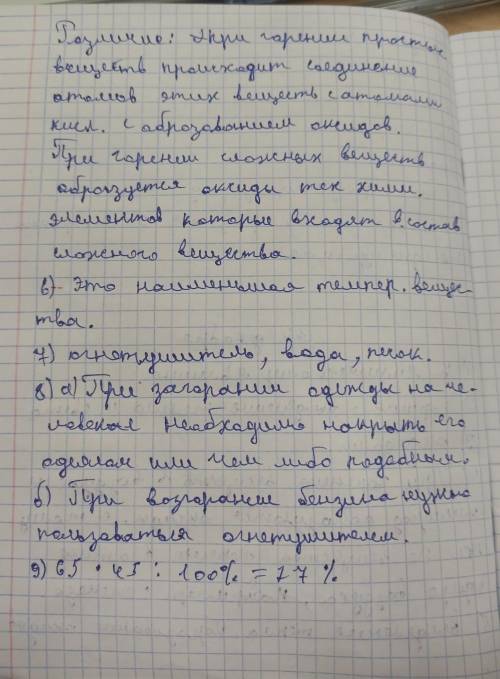 Различие: При горении простых
веществ происходит соединение
атомов этих веществ с атомами
кисл. с аброзованием оксидов.
При горении сложных веществ
аброзуется оксиды тех хими.
элементов которые входят в состав
сложного вещества.
6) Это наименьшая темпер. вещес-
тва.
7) огнетушитель, вода, песок.
8) а) При загорании одежды на че-
ловеке необходимо накрыть его
одеялом или чем либо подобным.
б) При возгорание бензина нужно
пользоваться огнетушителем.
9) 65 • 45 : 100% = 27 %